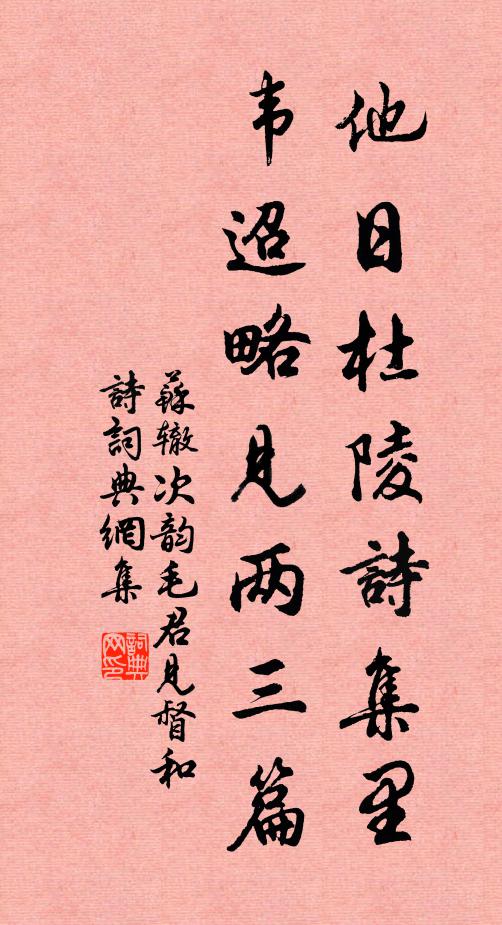 他日杜陵詩集里
韦迢略見两三篇
蘇辙次韵毛君見督和
詩詞典網集
詞典
网印